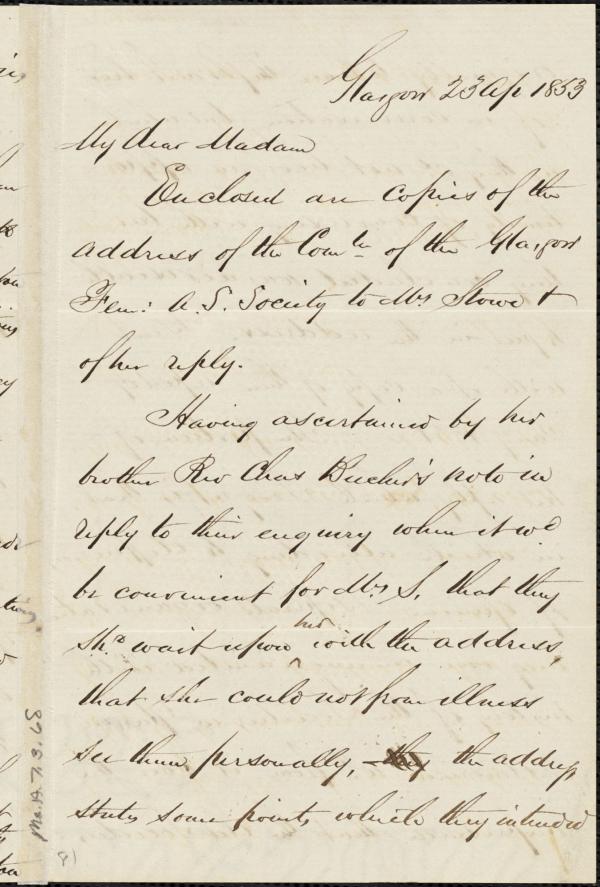 Glasgow 23d Ap 1853
My dear Madam
Enclosed are copies of the
address of the Comtee of the Glasgow
Fem: A. S. Society to Mrs Stowe &
of her reply.
Having ascertained by her
brother Rev Chas Beecher's note in
reply to their enquiry when it wd
be convenient for Mrs S. that they
shd wait upon her with the address,
that she could not from illness
see them personally, the address
states some points which they intended
Ms.A.7.3.68
81